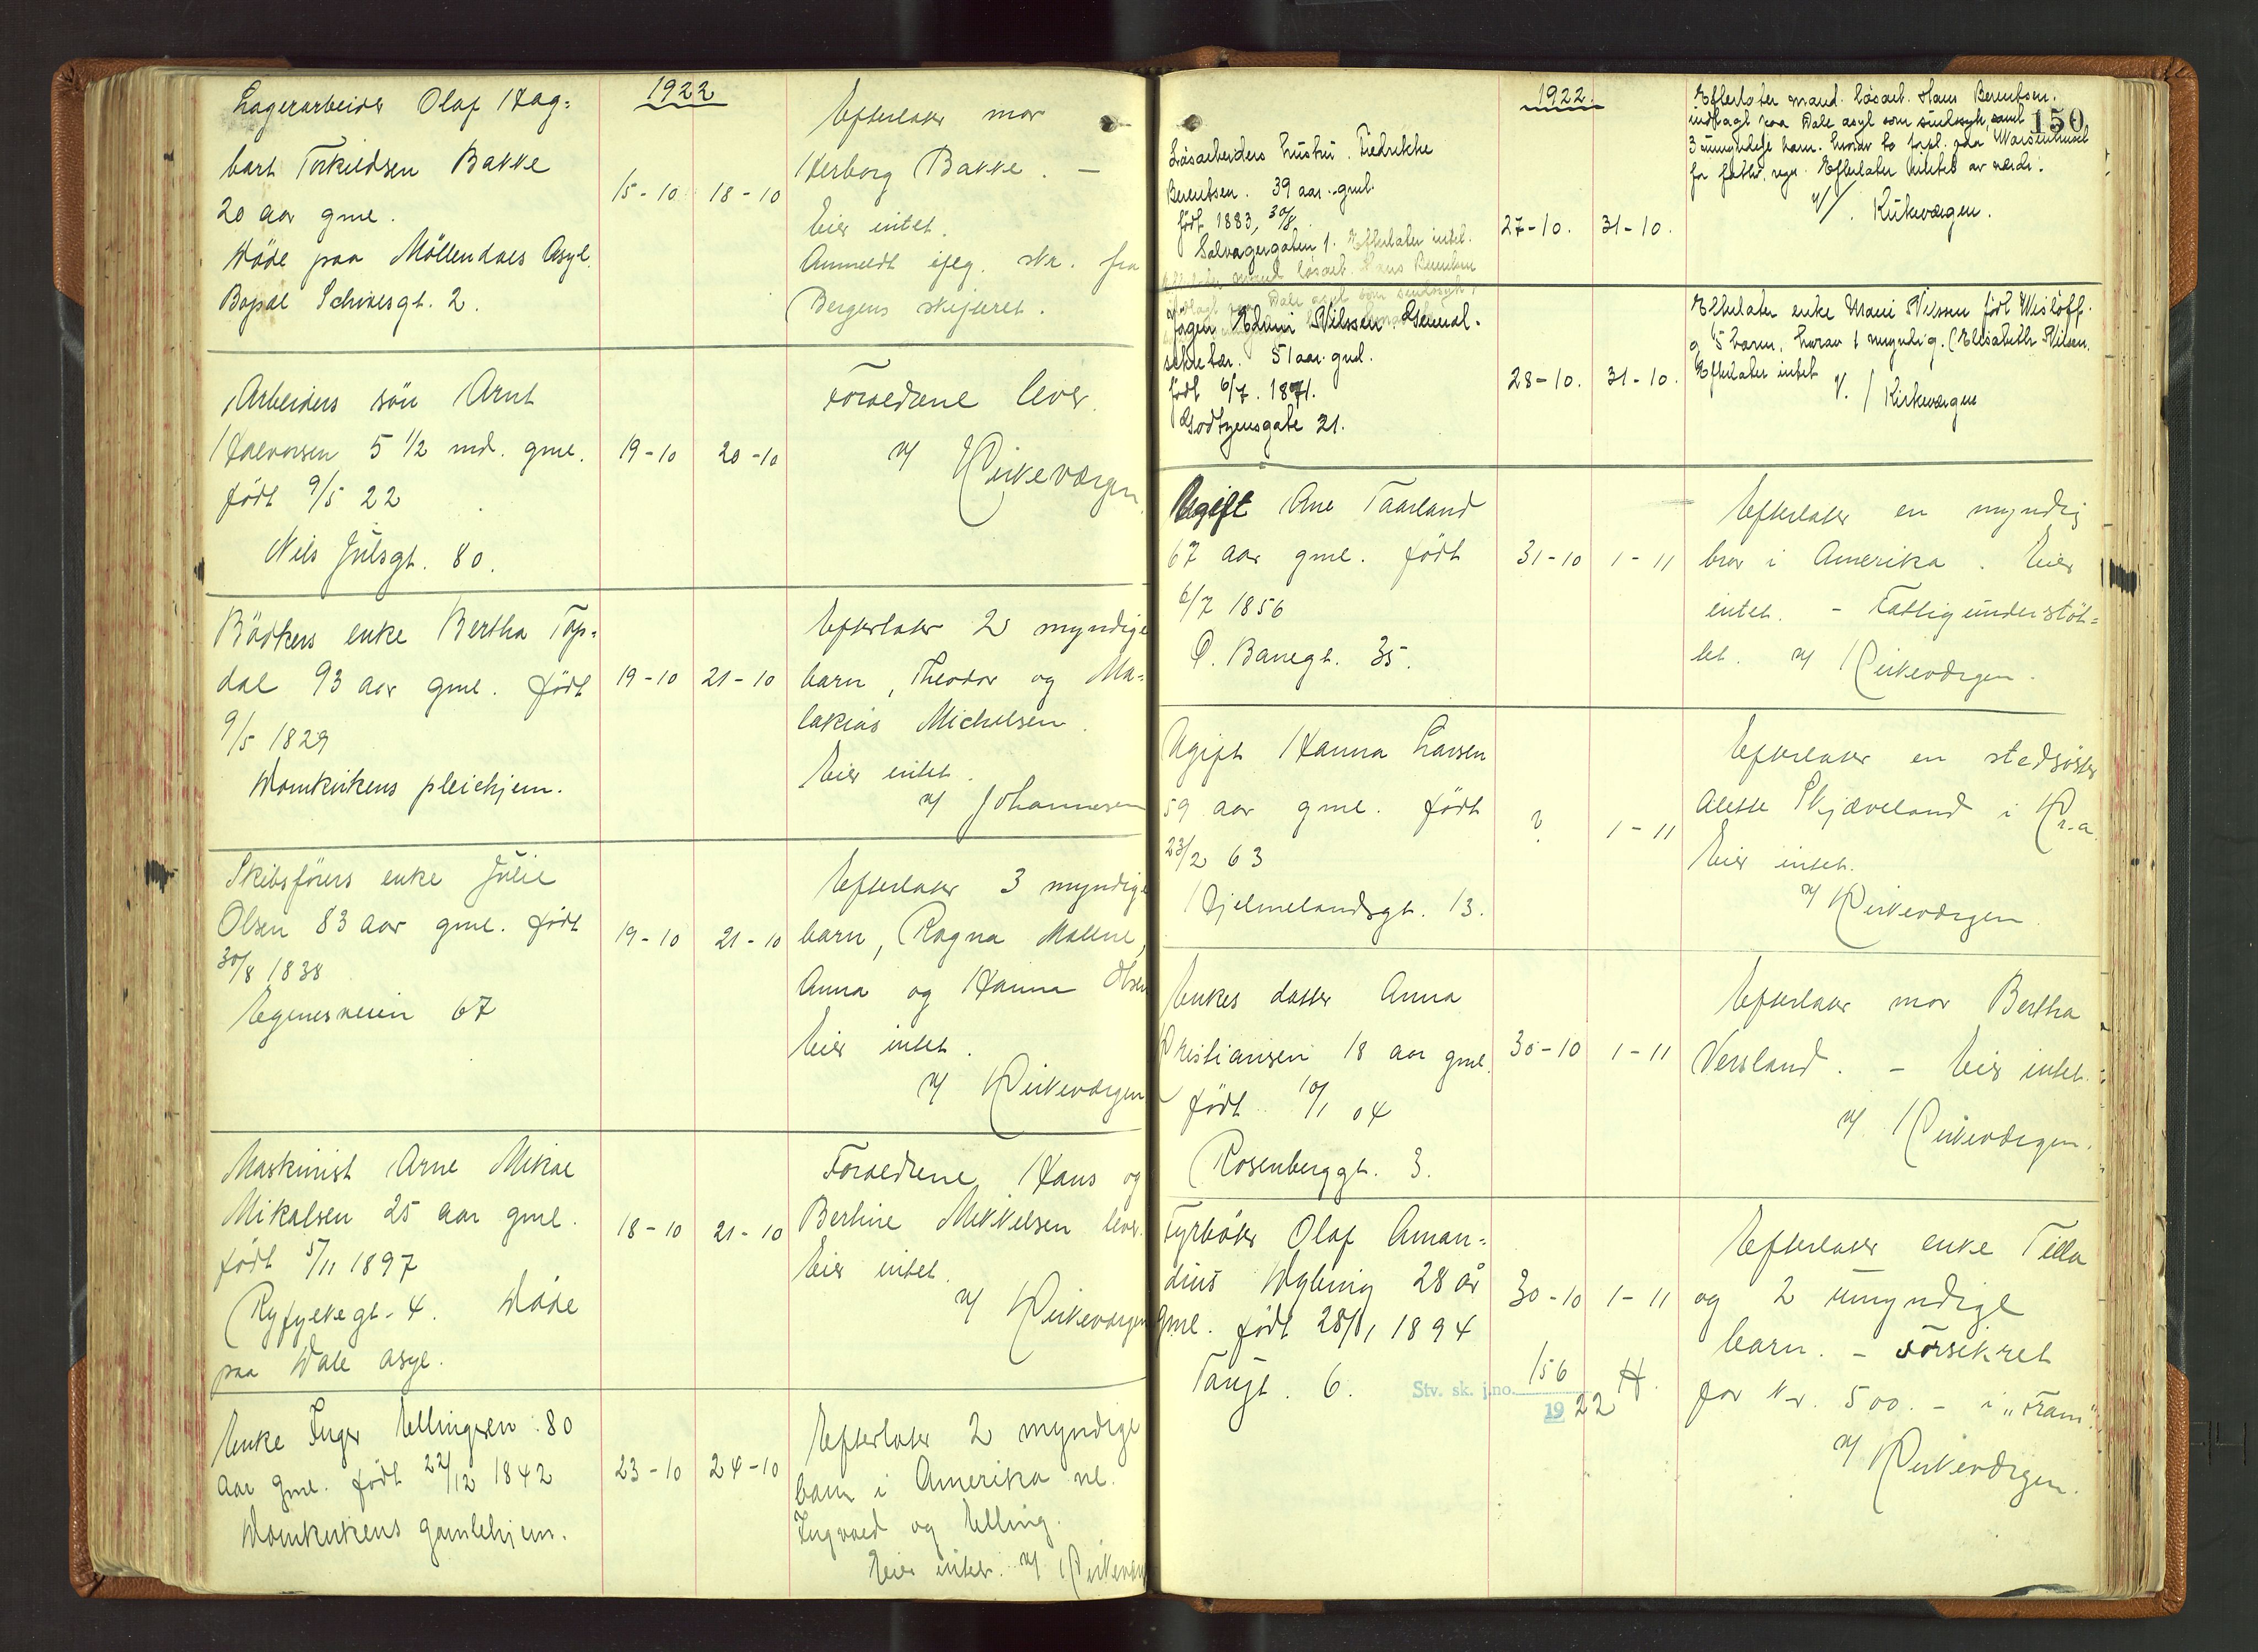 1922
Lagerarbeider Olaf Hag=
bart Torkildsen Bakke
20 aar gml.
Döde paa Möllendals Asyl
Bopæl Schivesgt. 2.
15-10 18-10
Efterlater mor
Herborg Bakke. -
Eier intet.
Anmeldt iflg. skr. fra
Bergens skifteret.
Arbeiders sön Arnt
Halvorsen 5 1/2 md. gml.
födt 9/5 22
Nils Julsgt. 80.
19-10 20-10
Foreldrene lever.
v/ Kirkevergen
Bödkers enke Bertha Top=
dal 93 aar gml. födt
9/5 1829
Domkirkens pleiehjem.
19-10 21-10
Efterlater 2 myndige
barn, Theodor og Ma=
lakias Michelsen.
Eier intet.
v/ Johannesen
Skibsförers enke Julie
Olsen 83 aar gml. födt
30/8 1838
Egenesveien 67
19-10 21-10
Efterlater 3 myndige
barn, Ragna Malene,
Anna og Hanna Olsen
Eier intet.
v/ Kirkevergen
Maskinist Arne Mikal
Mikalsen 25 aar gml.
födt 5/11 1897
Ryfylkegt. 4. Döde
paa Dale asyl.
18-10 21-10
Foreldrene Hans og
Bertine Mikkelsen lever.
Eier intet.
v/ Kirkevergen
Enke Inger Ellingsen 80
aar gml. födt 22/12 1842
Domkirkens gamlehjem.
23-10 24-10
Efterlater 2 myndige
barn i Amerika nl.
Ingvald og Elling.
Eier intet. v/ Kirkeverg
1922.
150
Lösarbeiders hustru. Fredrikke
Berentsen. 39 aar. gml.
födt 1883, 30/8.
Solvagergaten 1. Efterlater intet.
27-10. 31-10.
Efterlater mand. lösarb. Hans Berentsen.
indlagt paa Dale asyl som sindssyk, samt
3 umyndige barn. hvorav to forpl. paa Waisenhuset
for fattiv. regn. Efterlater intet av værdi.
v/. Kirkevergen.
Edvin Nilssen General.
sekretær. 51 aar. gml.
födt 6/7. 1871.
Godtzensgate 21.
28-10. 31-10.
Efterlater enke Marie Nilssen födt Wislöff.
og 5 barn, hvorav 1 myndig. (Elisabeth Nilsen.
Efterlater intet
v. / Kirkevergen
Ugift Ane Taarland
67 aar gml. födt
6/7 1856
Ö. Banegt. 35.
31-10 1-11
Efterlater en myndig
bror i Amerika. Eier
intet. - Fattigunderstöt=
tet. v/ Kirkevergen.
Ugift Hanna Larsen
59 aar gml. födt
23/2 63
Hjelmelandsgt. 13.
? 1-11
Efterlater en stedsöster
Alette Skjæveland i Kr.a
Eier intet.
v/ Kirkevergen
Enkes datter Anna
Kristiansen 18 aar gml.
födt 10/1 04
Rosenberggt. 3.
30-10 1-11
Efterlater mor Bertha
Versland. - Eier intet.
v/ Kirkevergen.
Fyrböter Olaf Aman=
dius Dybing 28 år
gml. födt 28/1 1894
Taugt. 6.
30-10 1-11
Stv. sk. j.no. 156 H.
19 22
Efterlater enke Tilla
og 2 umyndige
barn. - Forsikret
for kr. 500. - i "Fram".
v/ Kirkevergen.